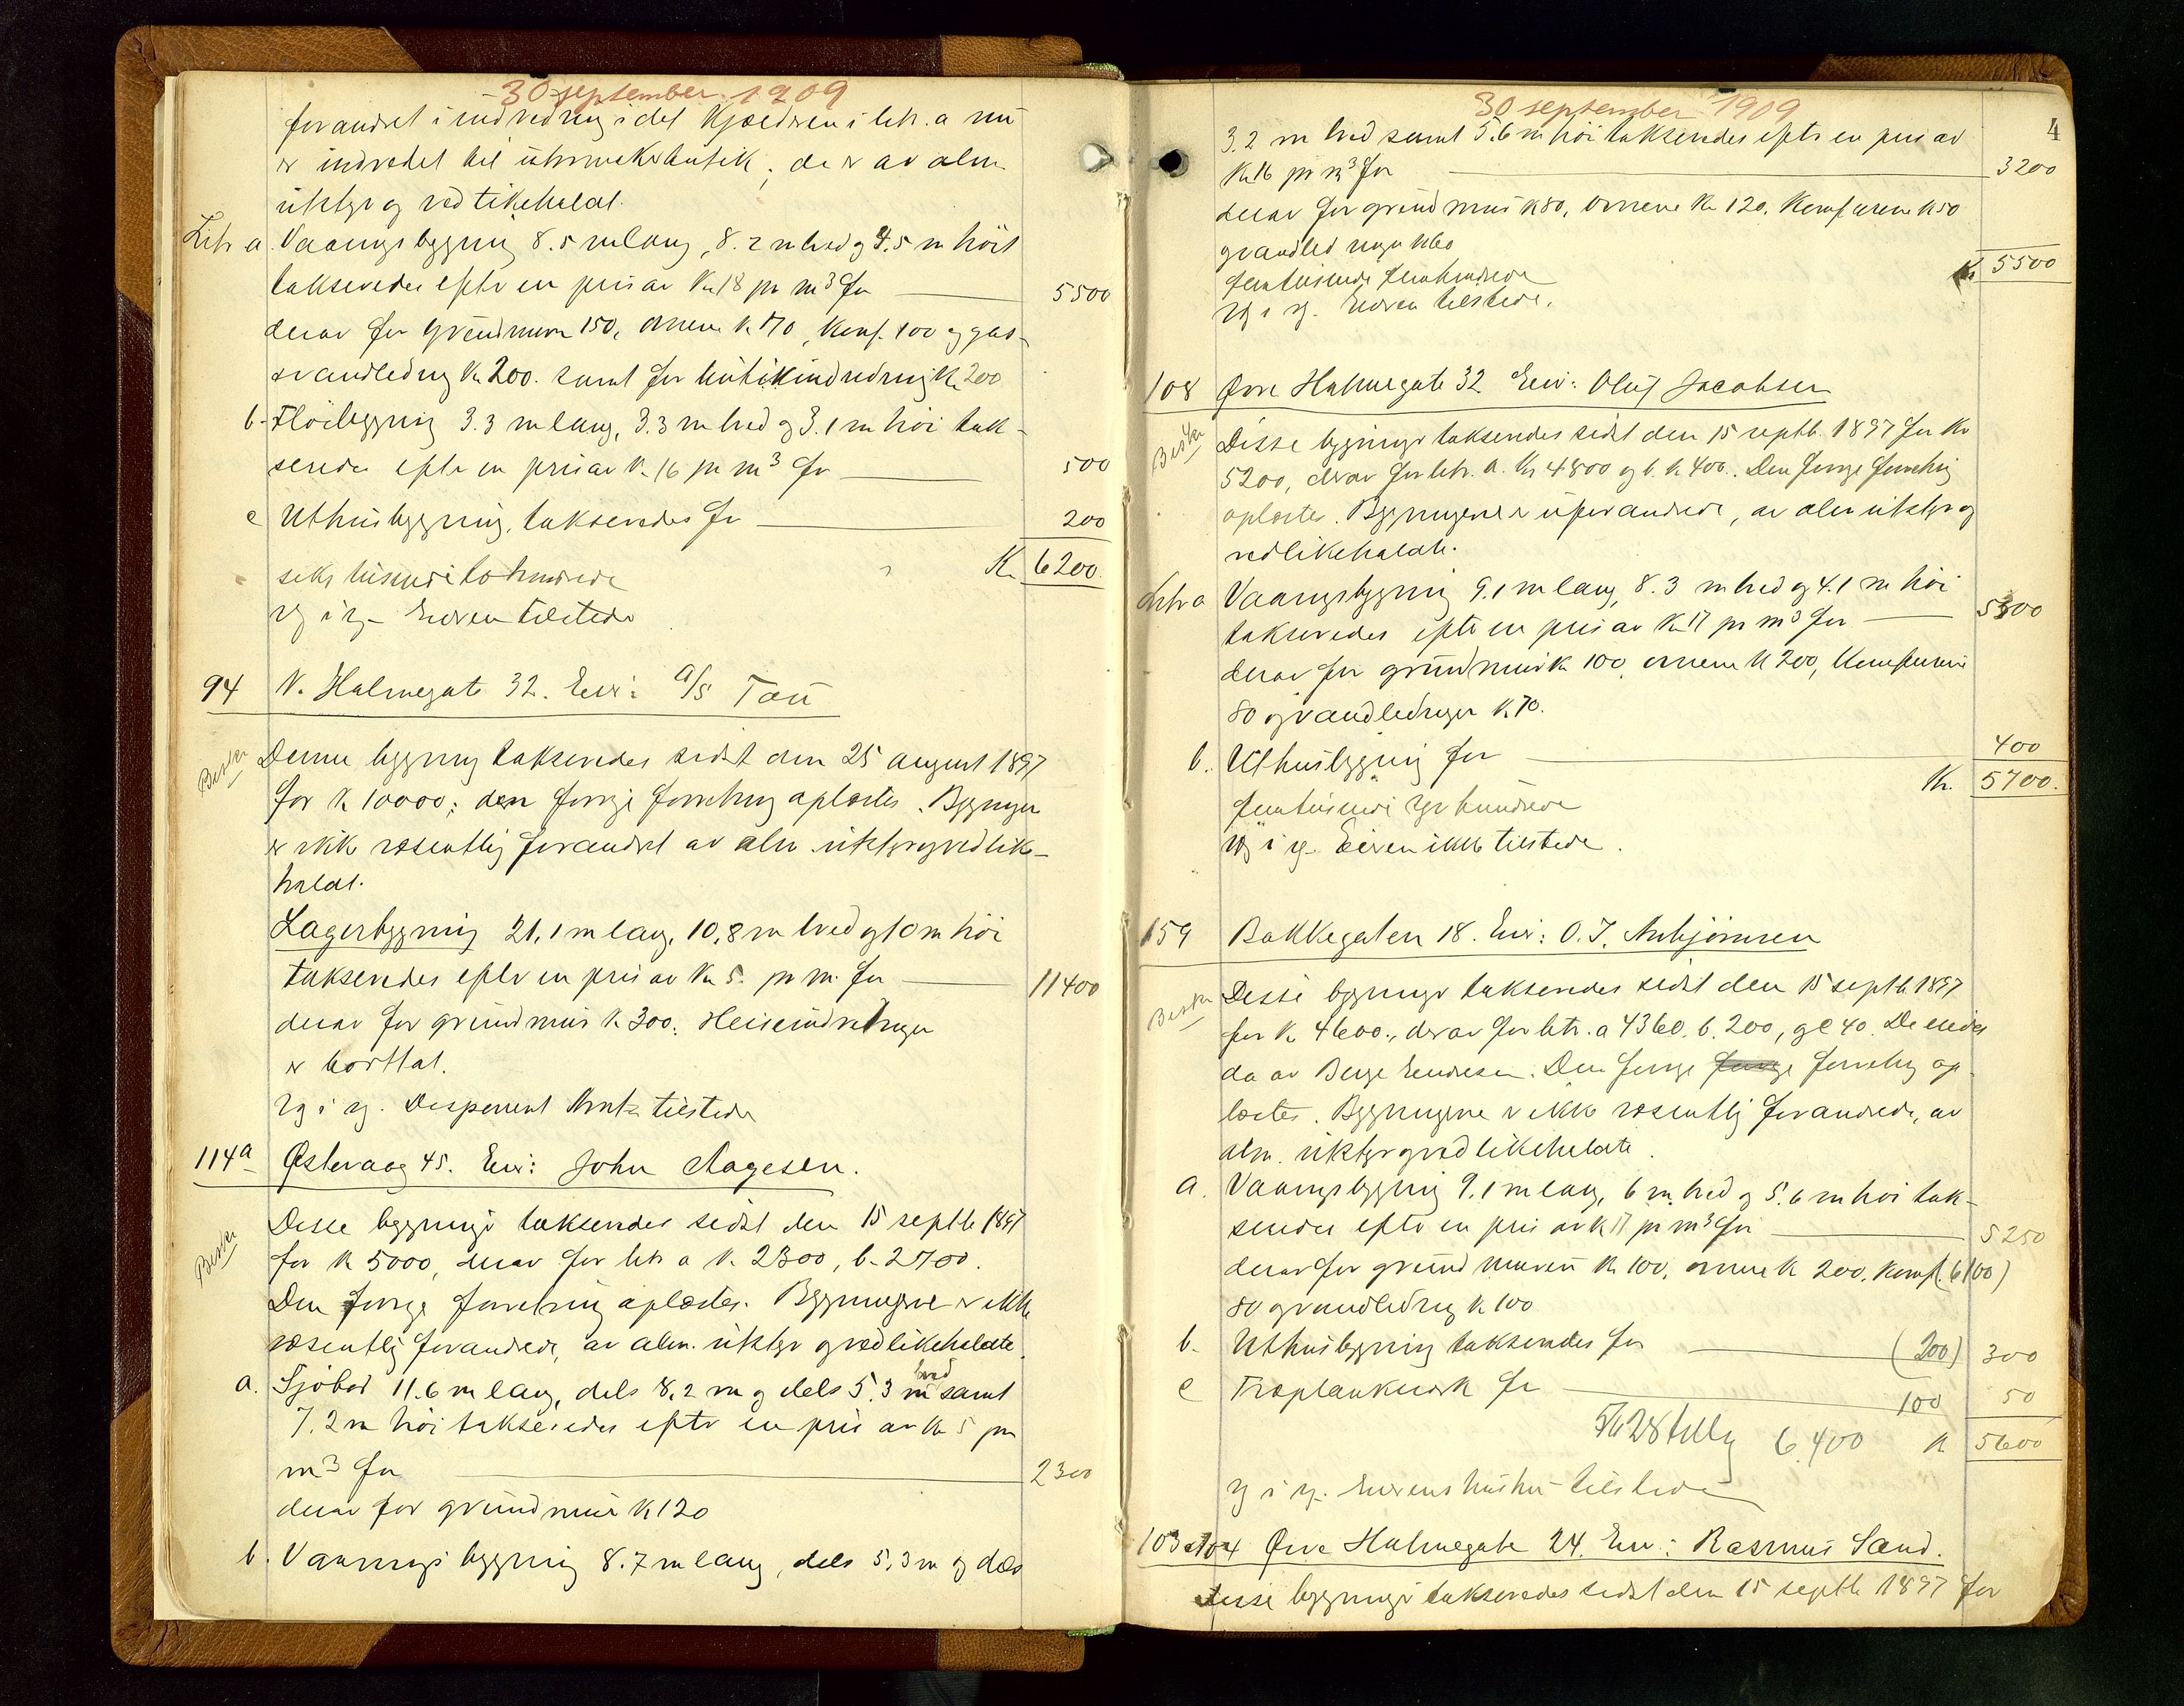 30 september 1909
forandret i indredning idet Kjælderen i litr. a nu
er indredet til uhrmakerbutik; de er av alm.
utstyr og vedlikeholdt.
Litr a. Vaaningsbygning 8.5 m lang, 8.2 m bred og 4.5 m höit
takseredes efter en pris av Kr 18 pr m³ for 5500
derav for grundmuren 150, ovnene k 170, Komf. 100 og gas-
vandledning Kr 200. samt for butikindredning Kr 200
b. Flöibygning 3.3 m lang, 3.3 m bred og 3.1 m höi tak-
seredes efter en pris av k. 16 pr m³ for 500
c Uthusbygning, takseredes for 200
Kr. 6200.
seks tusinde to hundrede
Eieren tilstede
94 N. Holmegate 32. Eier: A/S Tou
Beskr
Denne bygning takseredes sidst den 25 august 1897
for k 10000; den forrige forretning oplæstes. Bygningen
er ikke væsentlig forandret av alm. utstyr og vedlike-
holdt.
Lagerbygning 21,1 m lang, 10,8 m bred og 10 m höi
takseredes efter en pris av Kr 5. pr m. for 11400
derav for grundmur k. 300. Heiseindretningen
er borttat.
Disponent tilstede
114a Østervaag 45. Eier: John Aagesen.
Beskr
Disse bygninger takseredes sidst den 15 septb 1897
for k 5000, derav for litr a k. 2300, b. 2700.
Den forrige forretning oplæstes. Bygningerne er ikke
væsentlig forandrede, av alm. utstyr og vedlikeholdte
a. Sjöbod 11.6 m lang, dels 8.2 m og dels 5.3 m bred samt
7.2 m höi takseredes efter en pris av kr 5 pr
m³ for 2300
derav for grundmur k 120
b. Vaaningsbygning 8.7 m lang, dels 5,3 m og dels
30 september 1909
4
3.2 m bred samt 5.6 m höi takseredes efter en pris av
Kr 16 pr m³ for 3200
derav for grundmur k 80, ovnene Kr 120, Komfurene k 50
og vandledningen k 60
Kr 5500
femtusinde femhundrede
Eieren tilstede.
108 Øvre Holmegate 32 Eier: Oluf Jacobsen
Beskr
Disse bygninger takseredes sidst den 15 septb. 1897 for Kr
5200, derav for litr. a. Kr 4800 og b. k. 400. Den forrige forretning
oplæstes. Bygningerne er uforandrede, av alm utstyr og
vedlikeholdt.
Litr a Vaaningsbygning 9.1 m lang, 8.3 m bred og 4.1 m höi
takseredes efter en pris av Kr 17 pr m³ for 5300
derav for grundmur k 100, ovnene k 200, Komfurene
80 og vandledningen k 70.
b. Uthusbygning for 400
Kr. 5700.
femtusinde syv hundrede
Eieren ikke tilstede.
159 Bakkegaten 18. Eier: O. T. Asbjörnsen
Beskr
Disse bygninger takseredes sidst den 15 septb 1897
for k 4600., derav for litr. a 4360. b. 200, og c 40. De eiedes
da av Berge Endresen. Den forrige forretning op-
læstes. Bygningerne er ikke væsentlig forandrede, av
alm. utstyr og vedlikeholdte.
a. Vaaningsbygning 9.1 m lang, 6 m bred og 5.6 m höi tak-
seredes efter en pris av k 17 pr m³ for 5250
derav for grundmuren k 100, ovnene k 200, Komf. (6100)
80 og vandledning k 100
b. Uthusbygning takseredes for (200) 300
c Træplankeverk for 100 50
5/6 28 tillæg 6.400 k 5600
Eierens hustru tilstede
103 & 104 Øvre Holmegate 24. Eier: Rasmus Sand.
Disse bygninger takseredes sidst den 15 septb 1897 for